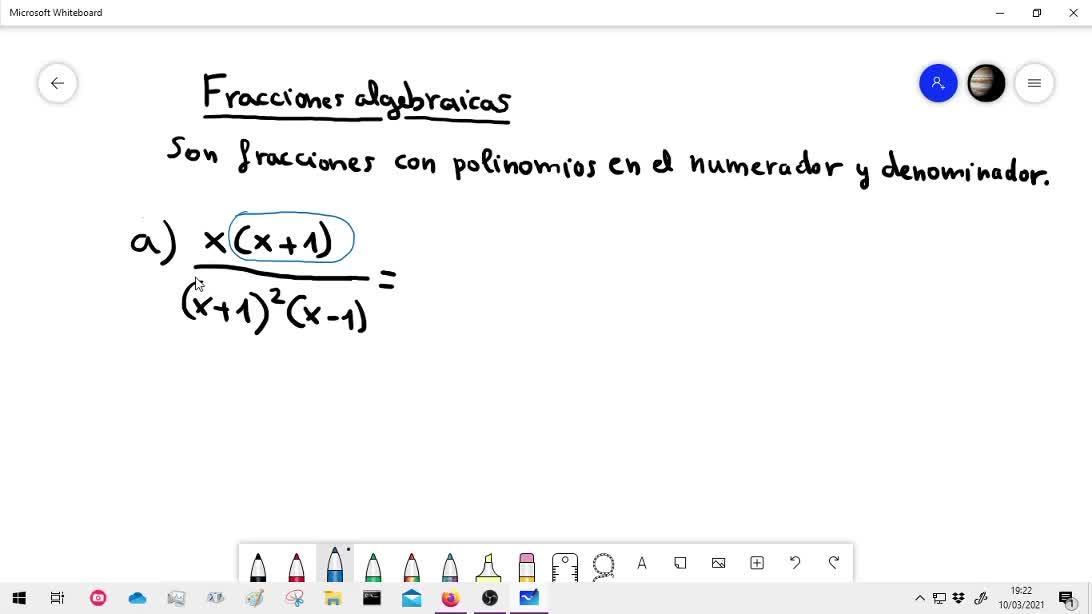 Microsoft Whiteboard
Fracciones algebraicas
Son fracciones con polinomios en el numerador y denominador.
a) x(x+1)
=
(x+1)²(x-1)
A
19:22
10/03/2021
1